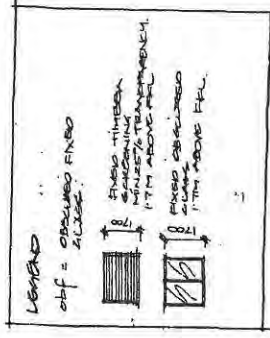 LEGEND
obf = OBSCURED FIXED
GLASS.
1700
FIXED TIMBER
SCREENING
MIN 25% TRANSPARENCY.
1.7M ABOVE FFL
1700
FIXED OBSCURED
GLASS
1.7M ABOVE FFL.